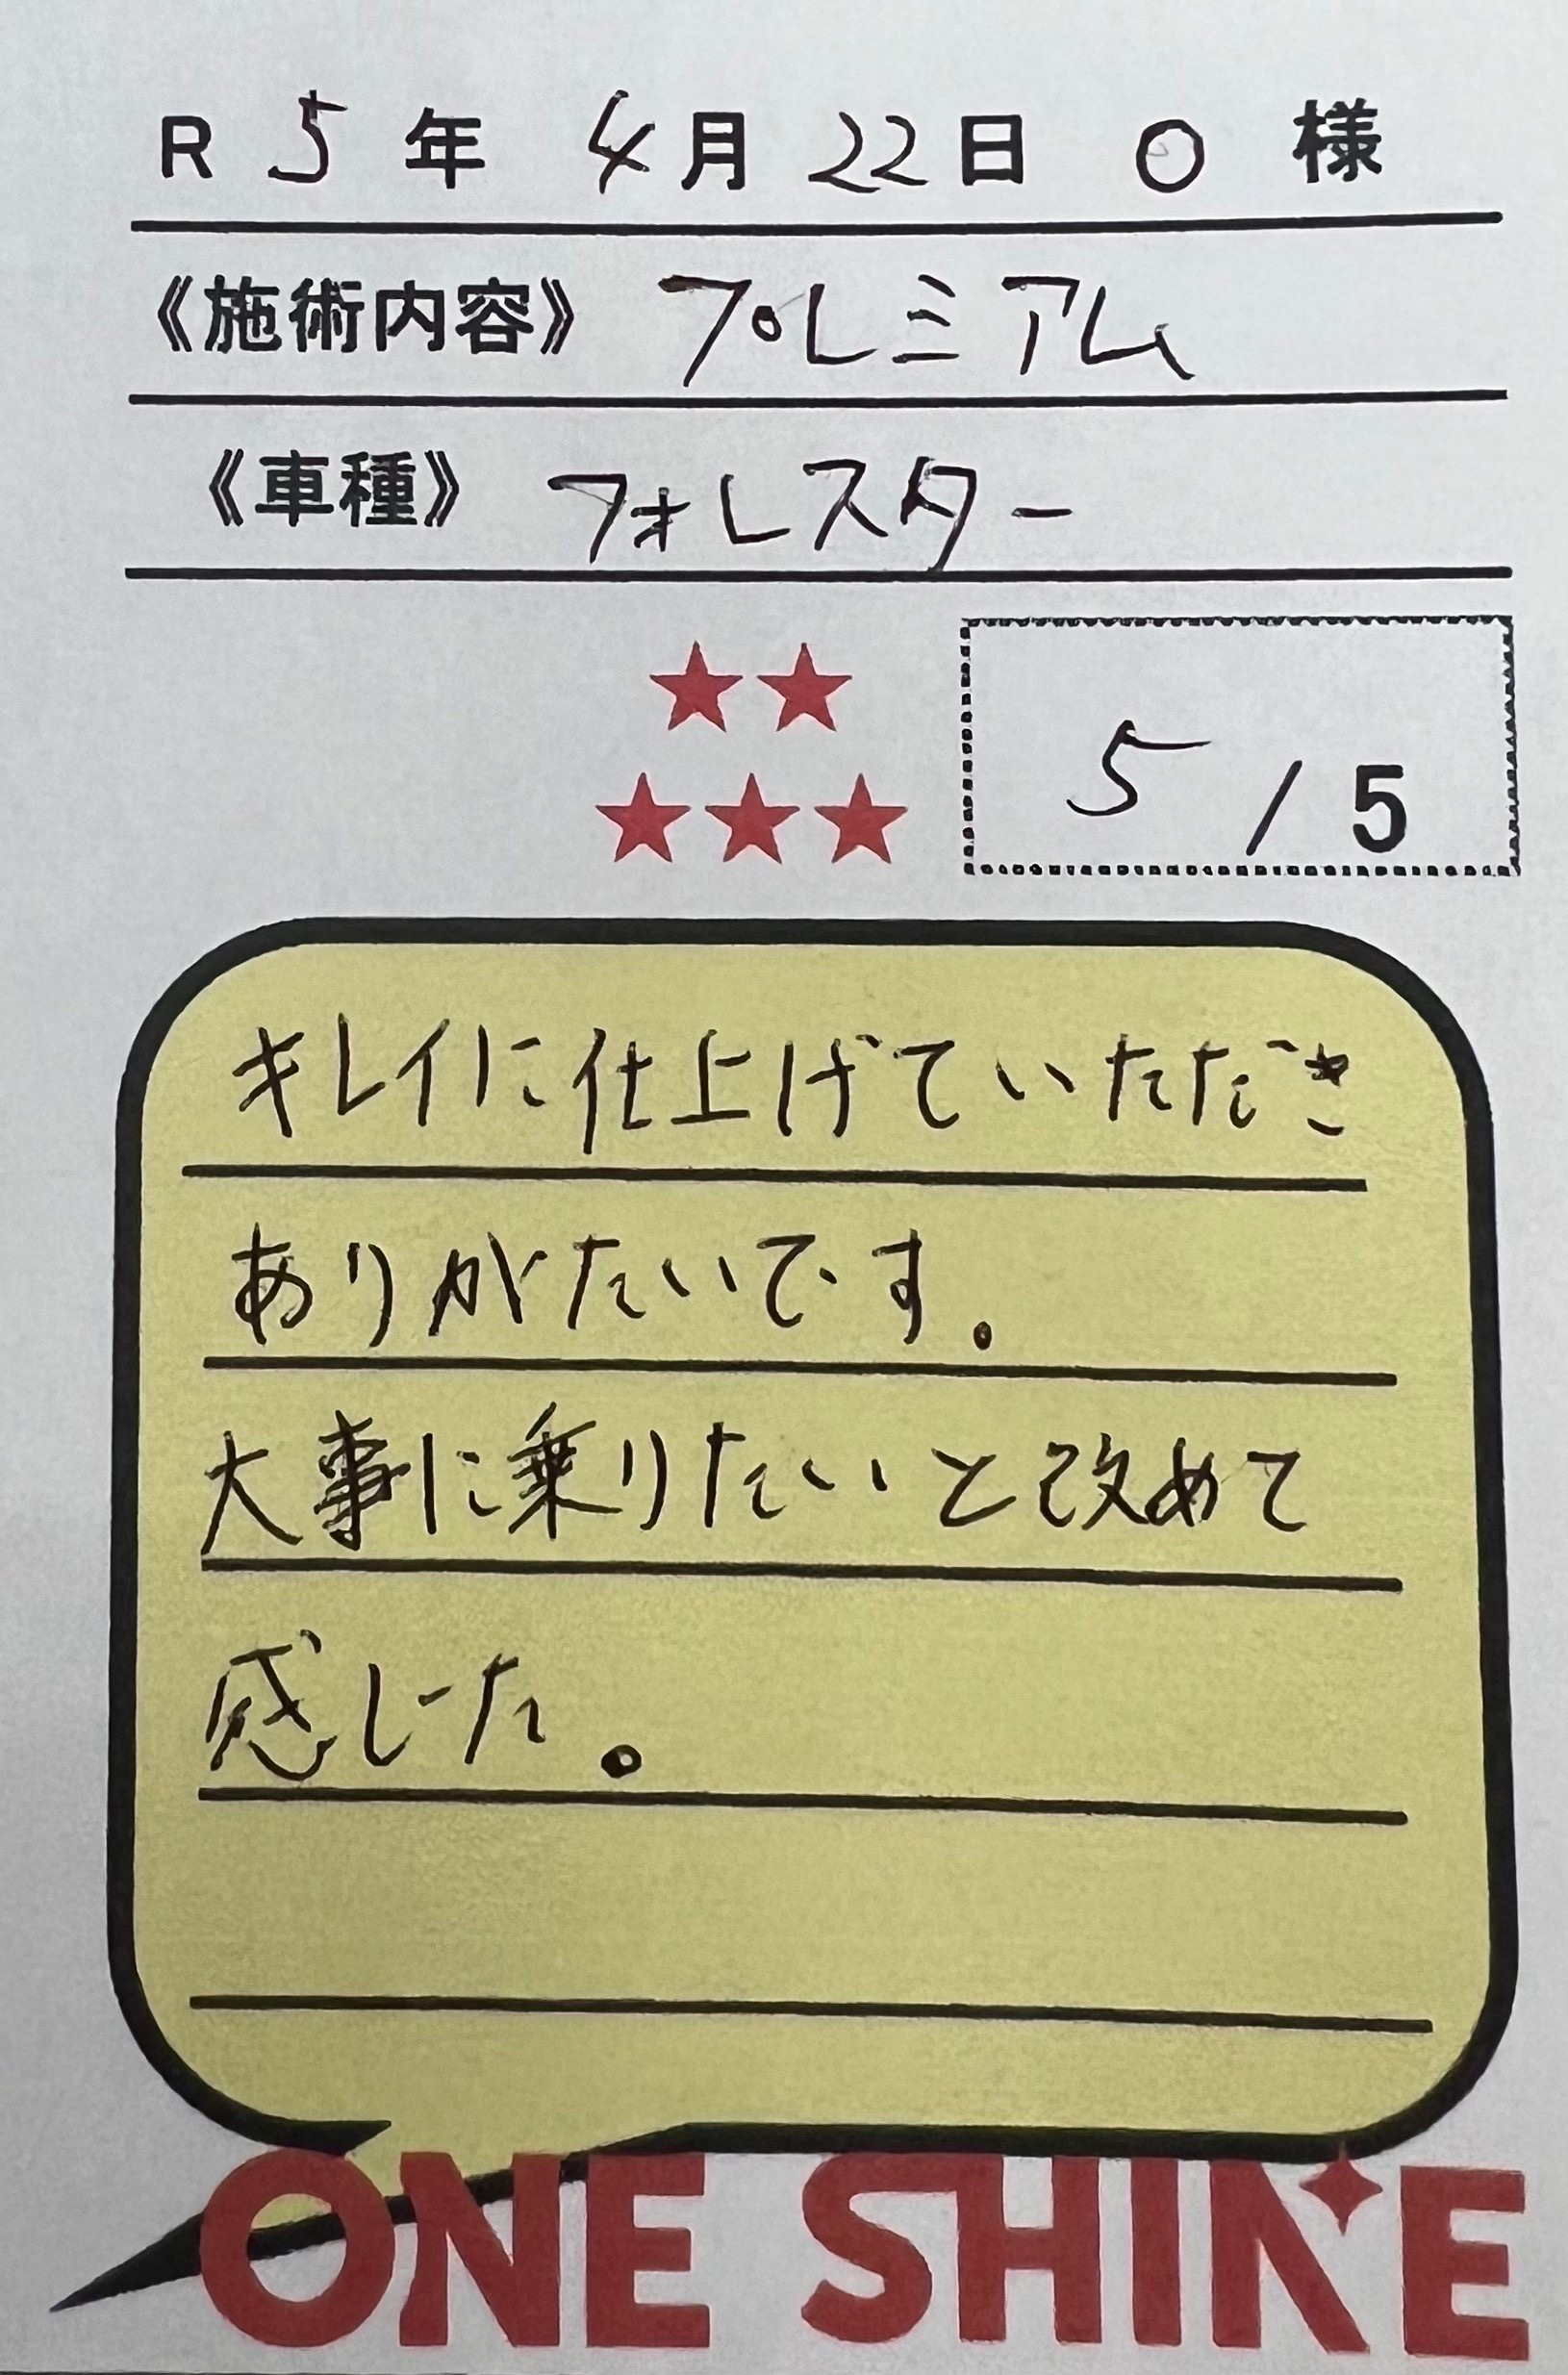 R 5 年 4 月 22 日 O 様
《施術内容》 プレミアム
《車種》 フォレスター
★★
★★★
5 / 5
キレイに仕上げていただき
ありがたいです。
大事に乗りたいと改めて
感じた。
ONE SHINE